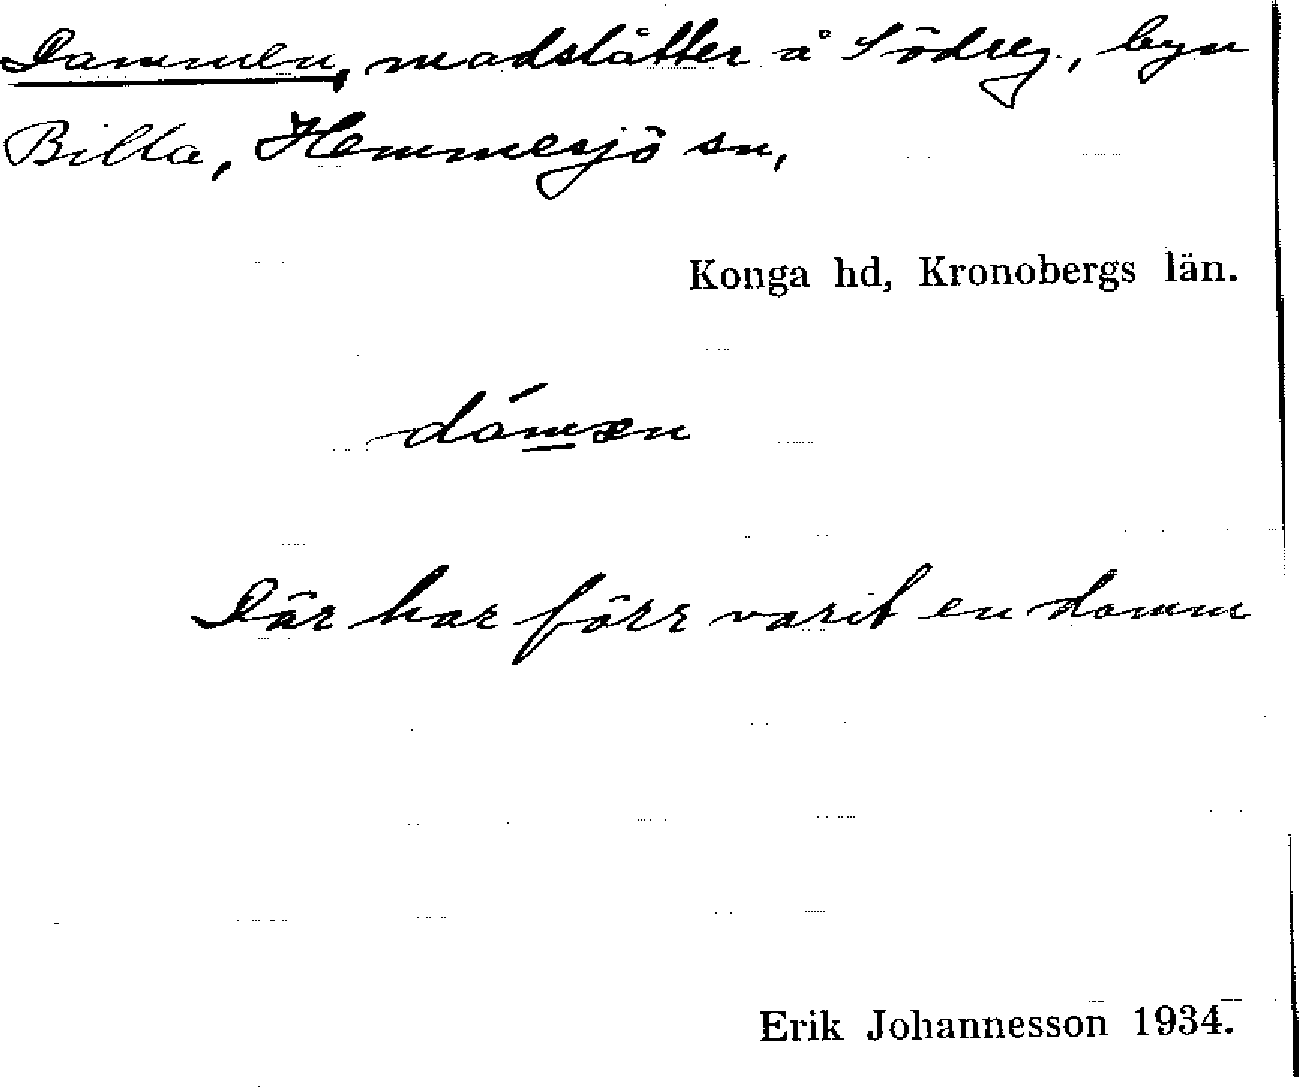 Dammen, madslåtter å Södreg., byn
Billa, Hemmesjö sn,
Konga hd, Kronobergs län.
dámæn
Där har förr varit en damm
Erik Johannesson 1934.